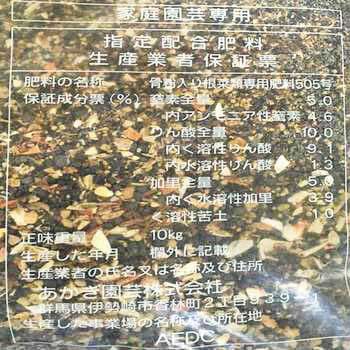 家庭園芸専用
指定配合肥料
生産業者保証票
肥料の名称 骨粉入り根菜類専用肥料505号
保証成分票(%) 窒素全量 5.0
内アンモニア性窒素 4.6
りん酸全量 10.0
内く溶性りん酸 9.1
内水溶性りん酸 1.3
加里全量 5.0
内く水溶性加里 3.9
く溶性苦土 1.0
正味重量 10kg
生産した年月 欄外に記載
生産業者の氏名又は名称及び住所
あかぎ園芸株式会社
群馬県伊勢崎市香林町2丁目939-1
生産した事業場の名称及び所在地
AEDC